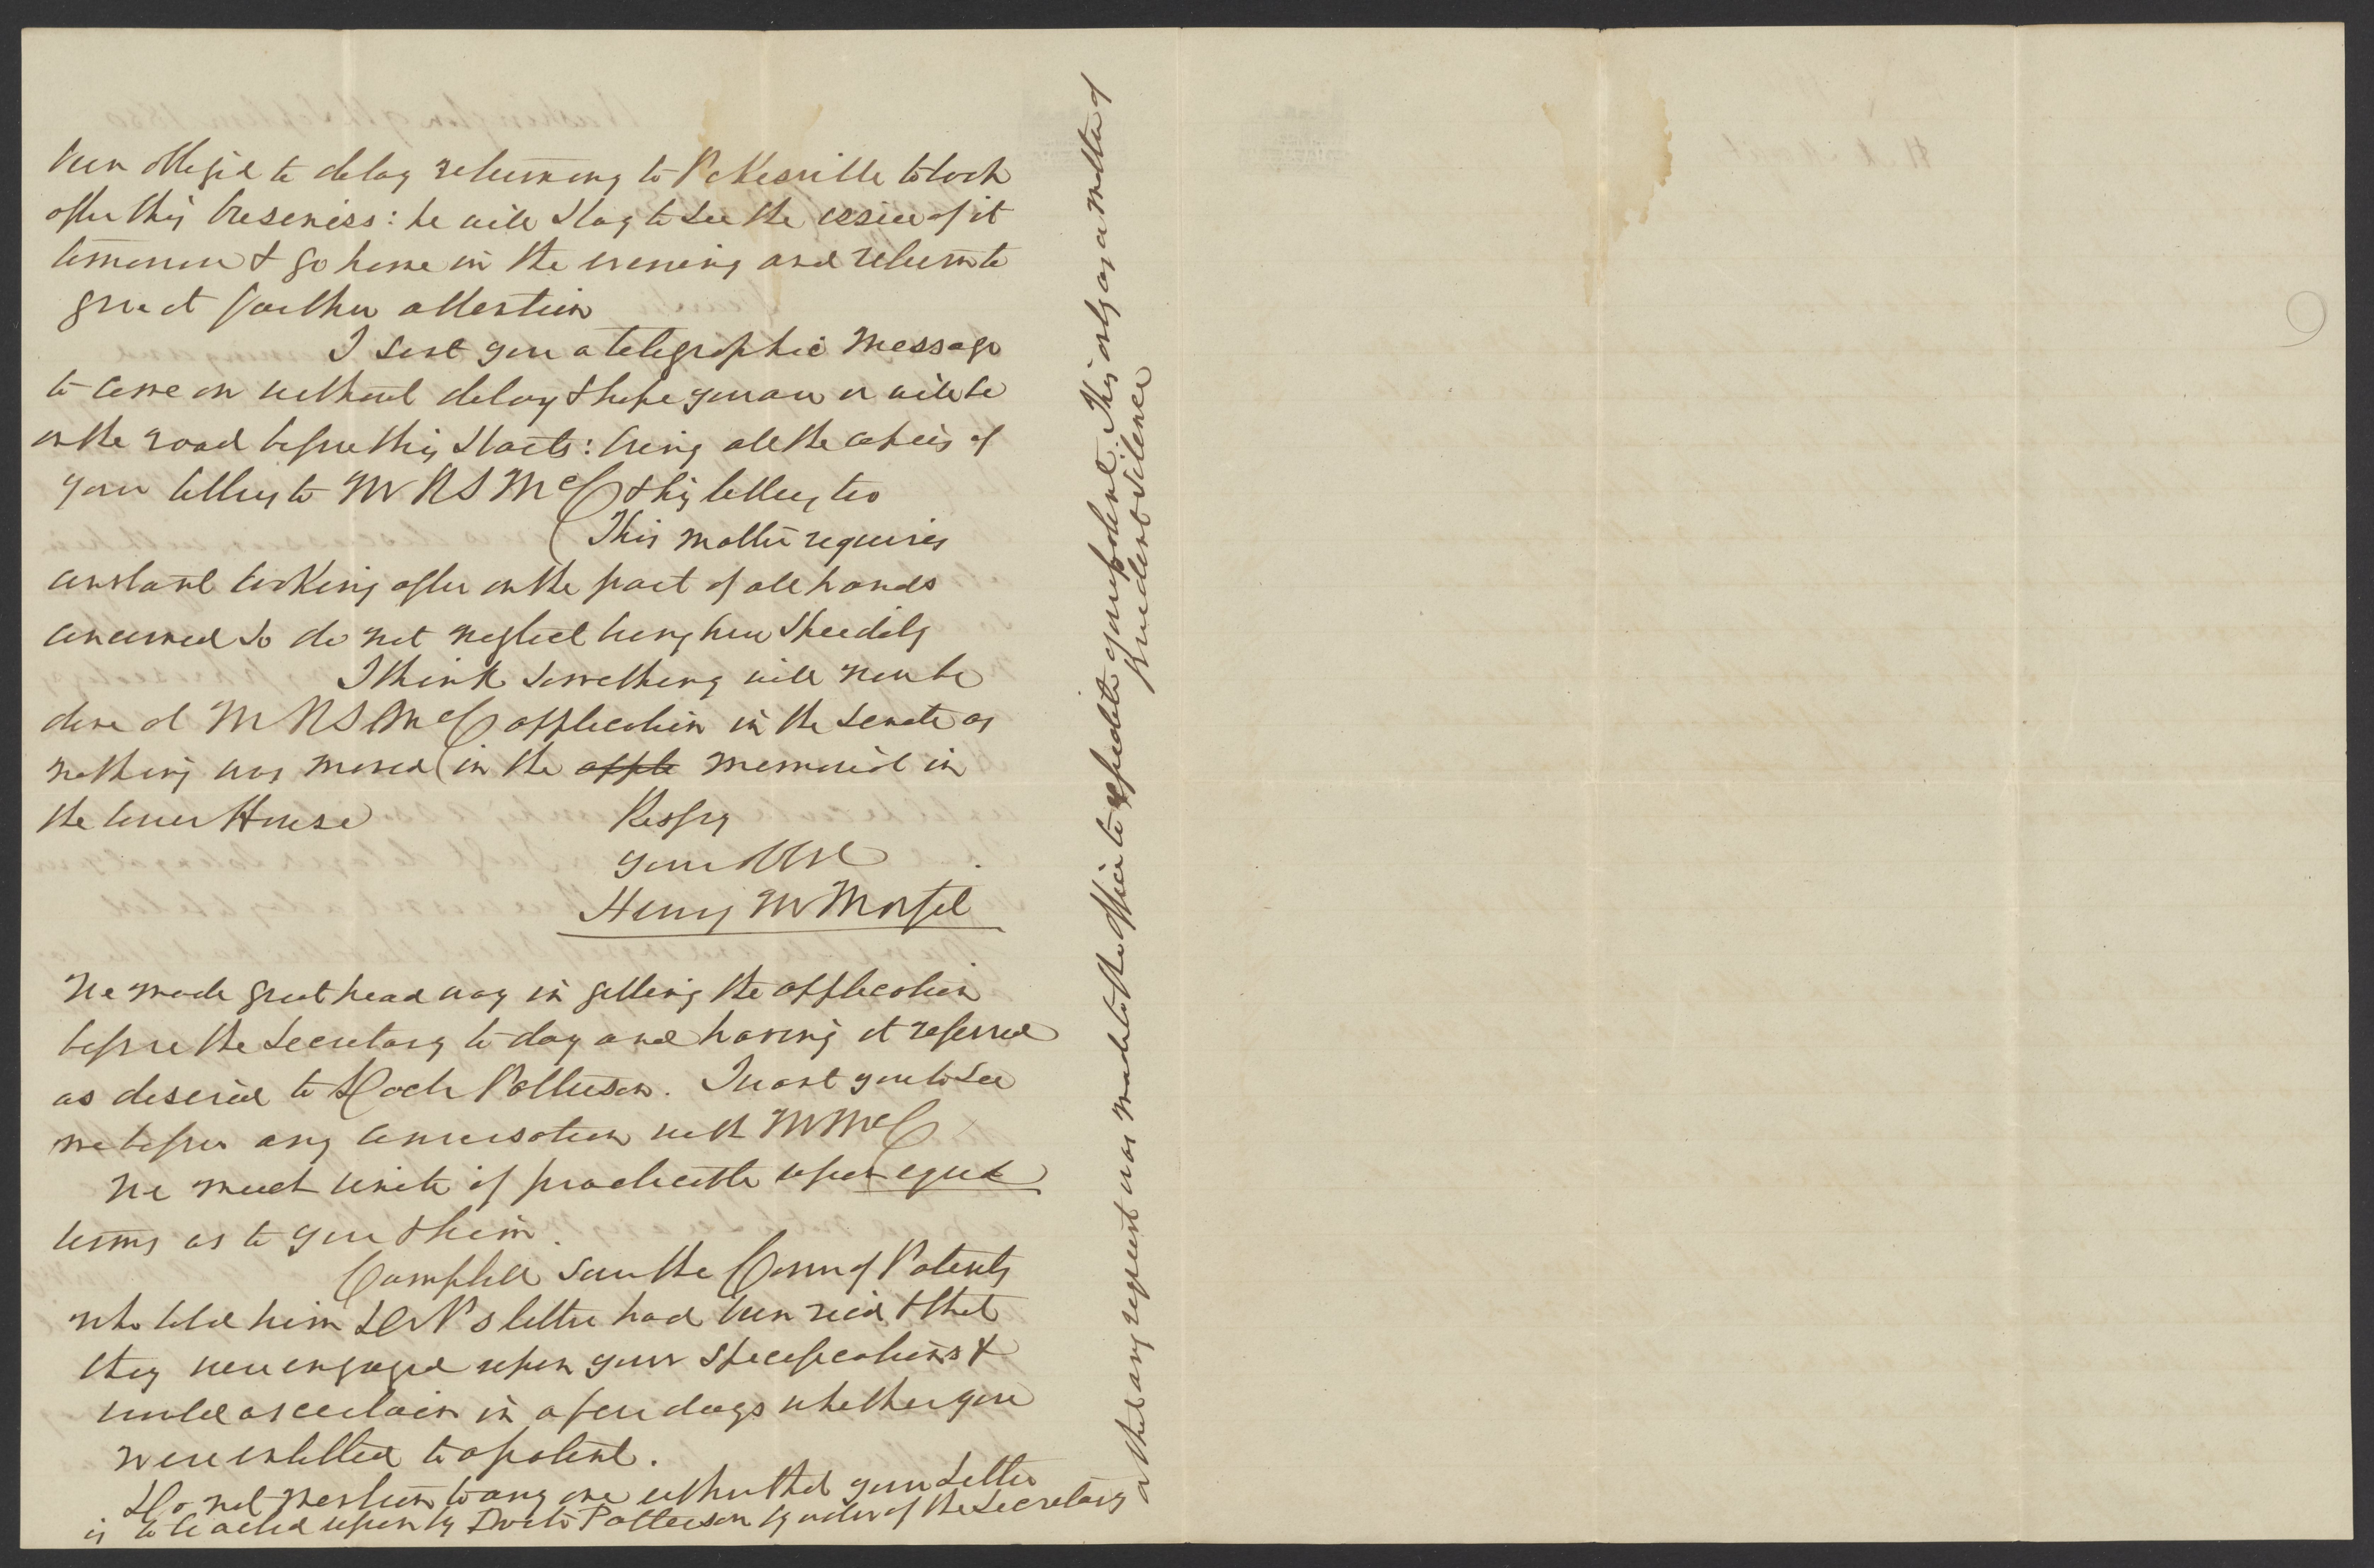 been obliged to delay returning to Pikesville to look
after this business: he will stay to see the issue of it
tomorrow & go home in the evening and return to
give it further attention
I sent you a telegraphic message
to come on without delay & hope you are or will be
on the road before this starts: bring all the copies of
your letters to Mr R S McC & his letters too
This matter requires
constant looking after on the part of all hands
concerned so do not neglect being here speedily
I think something will now be
done at Mr R S McC application in the Senate as
nothing was moved in the apple memorial in
the lower House
Respfy
your Obt
Henry M Morfit
We made great head way in getting the application
before the Secretary to day and having it referred
as desired to Doctr Patterson. I want you to see
me before any conversation with Mr McC
We must unite if practicable upon equal
terms as to you & him.
Campbell saw the Comr of Patents
who told him Dr P's letter had been recd & that
they were engaged upon your specifications &
would ascertain in a few days whether you
were entitled to a patent.
Do not mention to any one either that your Letter
is to be acted upon by Doctr Patterson by order of the Secretary
or that any request was made to the Office to expedite your patent. This only as a matter of
prudent silence